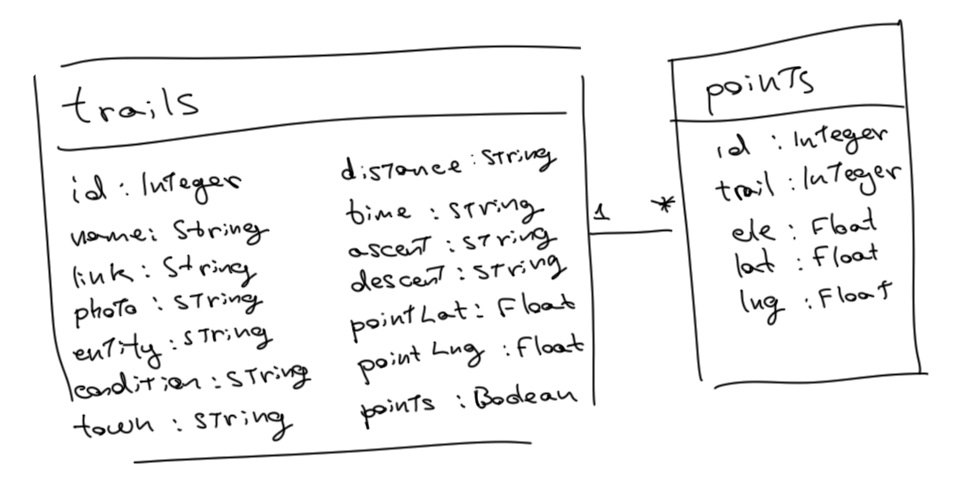 trails
id : Integer
name: String
link : String
photo : String
entity : String
condition : String
town : String
distance : String
time : String
ascent : String
descent : String
pointLat : Float
pointLng : Float
points : Boolean
1 *
points
id : Integer
trail : Integer
ele : Float
lat : Float
lng : Float